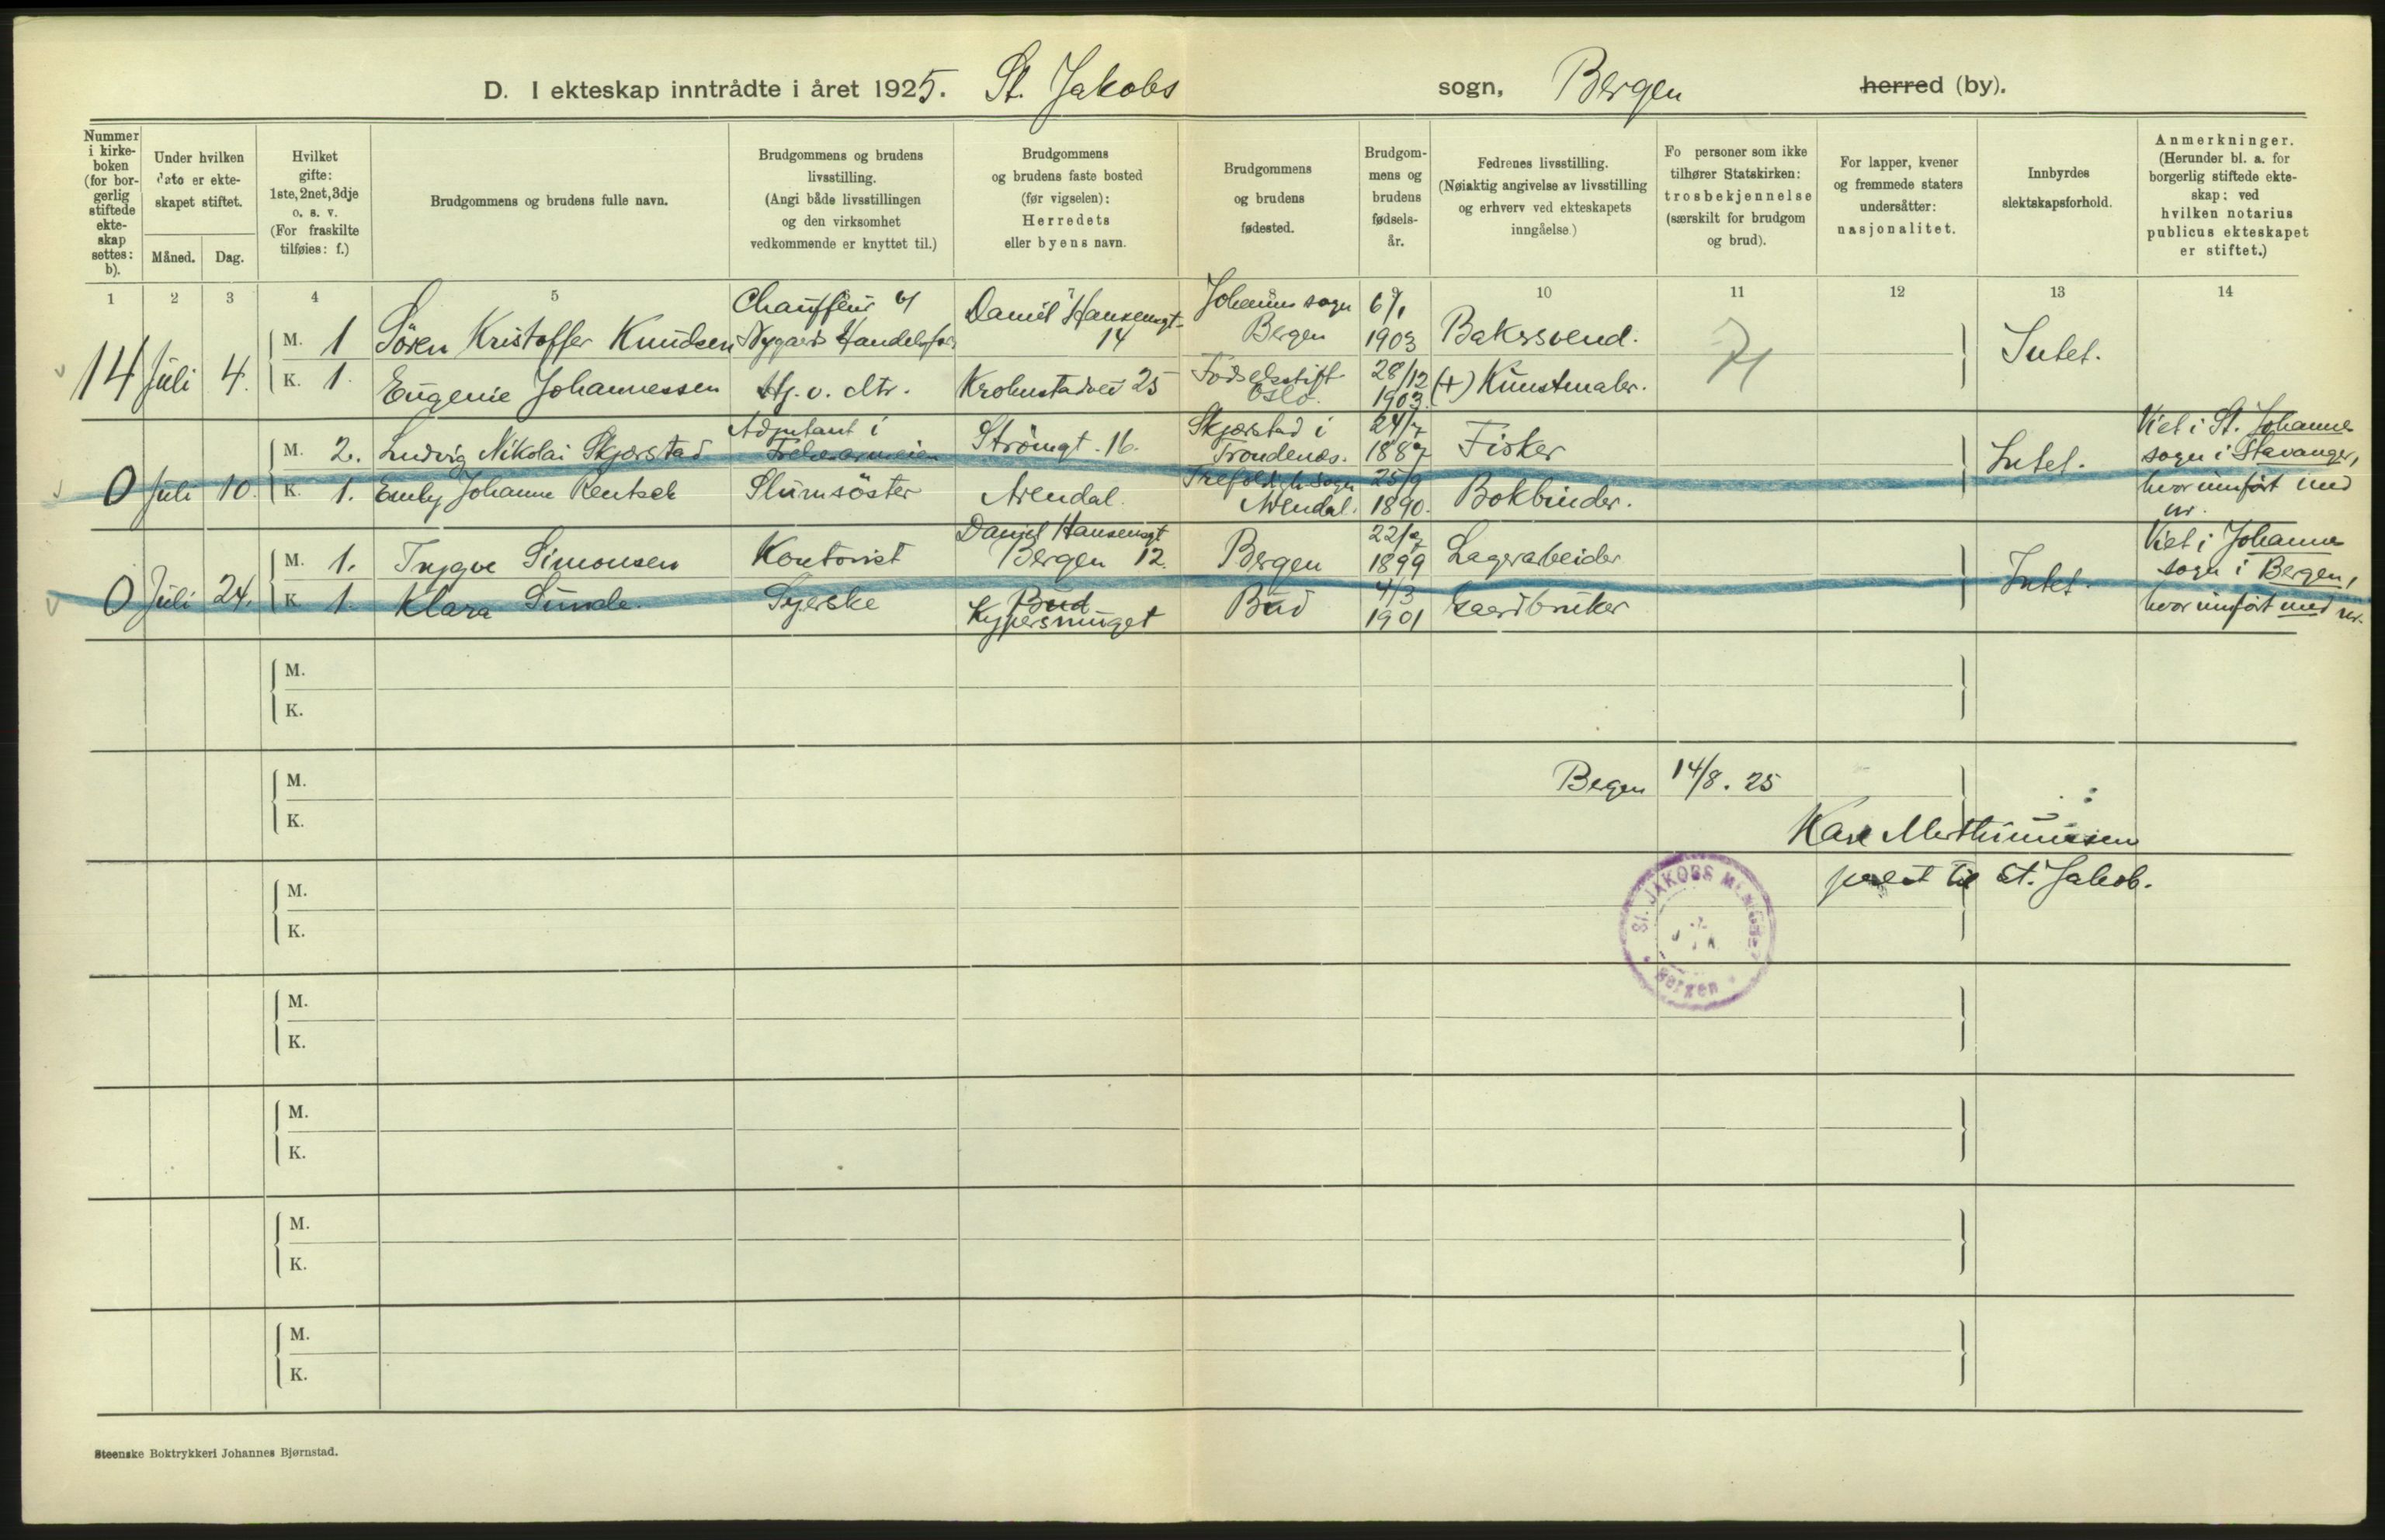 D. I ekteskap inntrådte i året 1925. St. Jakobs sogn, Bergen herred (by).
Nummer i kirkeboken (for borgerlig stiftede ekteskap settes: b).
Under hvilken dato er ekteskapet stiftet.
Måned. Dag.
Hvilket gifte: 1ste, 2net, 3dje o. s. v. (For fraskilte tilføies: f.)
Brudgommens og brudens fulle navn.
Brudgommens og brudens livsstilling. (Angi både livsstillingen og den virksomhet vedkommende er knyttet til.)
Brudgommens og brudens faste bosted (før vigselen): Herredets eller byens navn.
Brudgommens og brudens fødested.
Brudgommens og brudens fødselsår.
Fedrenes livsstilling. (Nøiaktig angivelse av livsstilling og erhverv ved ekteskapets inngåelse)
Fo personer som ikke tilhører Statskirken: trosbekjennelse (særskilt for brudgom og brud).
For lapper, kvener og fremmede staters undersåtter: nasjonalitet.
Innbyrdes slektskapsforhold.
Anmerkninger. (Herunder bl. a. for borgerlig stiftede ekteskap: ved hvilken notarius publicus ekteskapet er stiftet.)
1 2 3 4 5 7 9 10 11 12 13 14
14 Juli 4.
M. 1 Sören Kristoffer Knudsen Chauffeur v/ Nygaards Handelsfor. Daniel Hansensgt. 14 Johannes sogn Bergen 6/1 1903 Baksersvend.
K. 1. Eugenie Johannessen Hj. v. Mtr. Krohnstadvei 25 Fødselsstift. Oslo. 28/12 1903. (+) Kunstmaler.
Intet.
0 Juli 10.
M. 2. Ludvig Nikolai Skjærstad Adjutant i Frelsesarmeien Strömgt. 16. Skjærstad i Trondenæs. 24/7 1887 Fisker
K. 1. Emily Johanne Rentsch Slumsöster Arendal. Trefoldigh. sogn Arendal. 25/9 1890. Bokbinder.
Intet.
Viet i St. Johannes sogn i Stavanger, hvor innført med nr.
0 Juli 24.
M. 1. Trygve Simonsen Kontorist Daniel Hansensgt Bergen 12. Bergen 22/9 1899 Lagerarbeider
K. 1. Klara Sunde. Syerske Bud Bud 4/3 1901 Gaardbruker
Intet.
Viet i Johannes sogn i Bergen, hvor innført med nr.
M.
K.
M.
K.
Bergen 14/8. 25
prest til St. Jakob.
M.
K.
St. JAKOBS MENIGHET
Bergen
M.
K.
M.
K.
M.
K.
M.
K.
Steenske Boktrykkeri Johannes Bjørnstad.